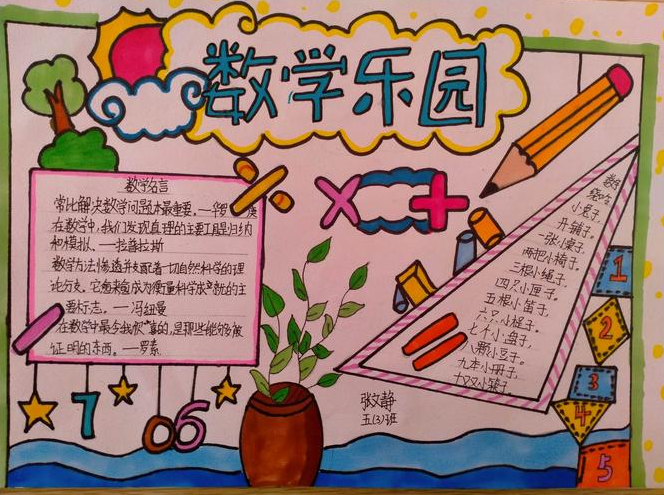 数学乐园
数学名言
常比解决数学问题本最重要。一华罗
在数学中,我们发现真理的主要工具是归纳
和模拟、一拉普拉斯
数学方法渗透并支配着一切自然科学的理
论分支。它愈来愈成为衡量科学成就的主
要标志。一冯纽曼
在数学中最令我欣喜的,是那些能够被
证明的东西。一罗素
数学
绕口
小兔子,
开铺子,
一张小桌子,
两把小椅子,
三根小绳子,
四只小匣子,
五根小笛子,
六只小棍子,
七个小盘子,
八颗小豆子,
九本小册子,
十双小筷子。
1
2
3
4
5
7
0 6
张文静
五(3)班